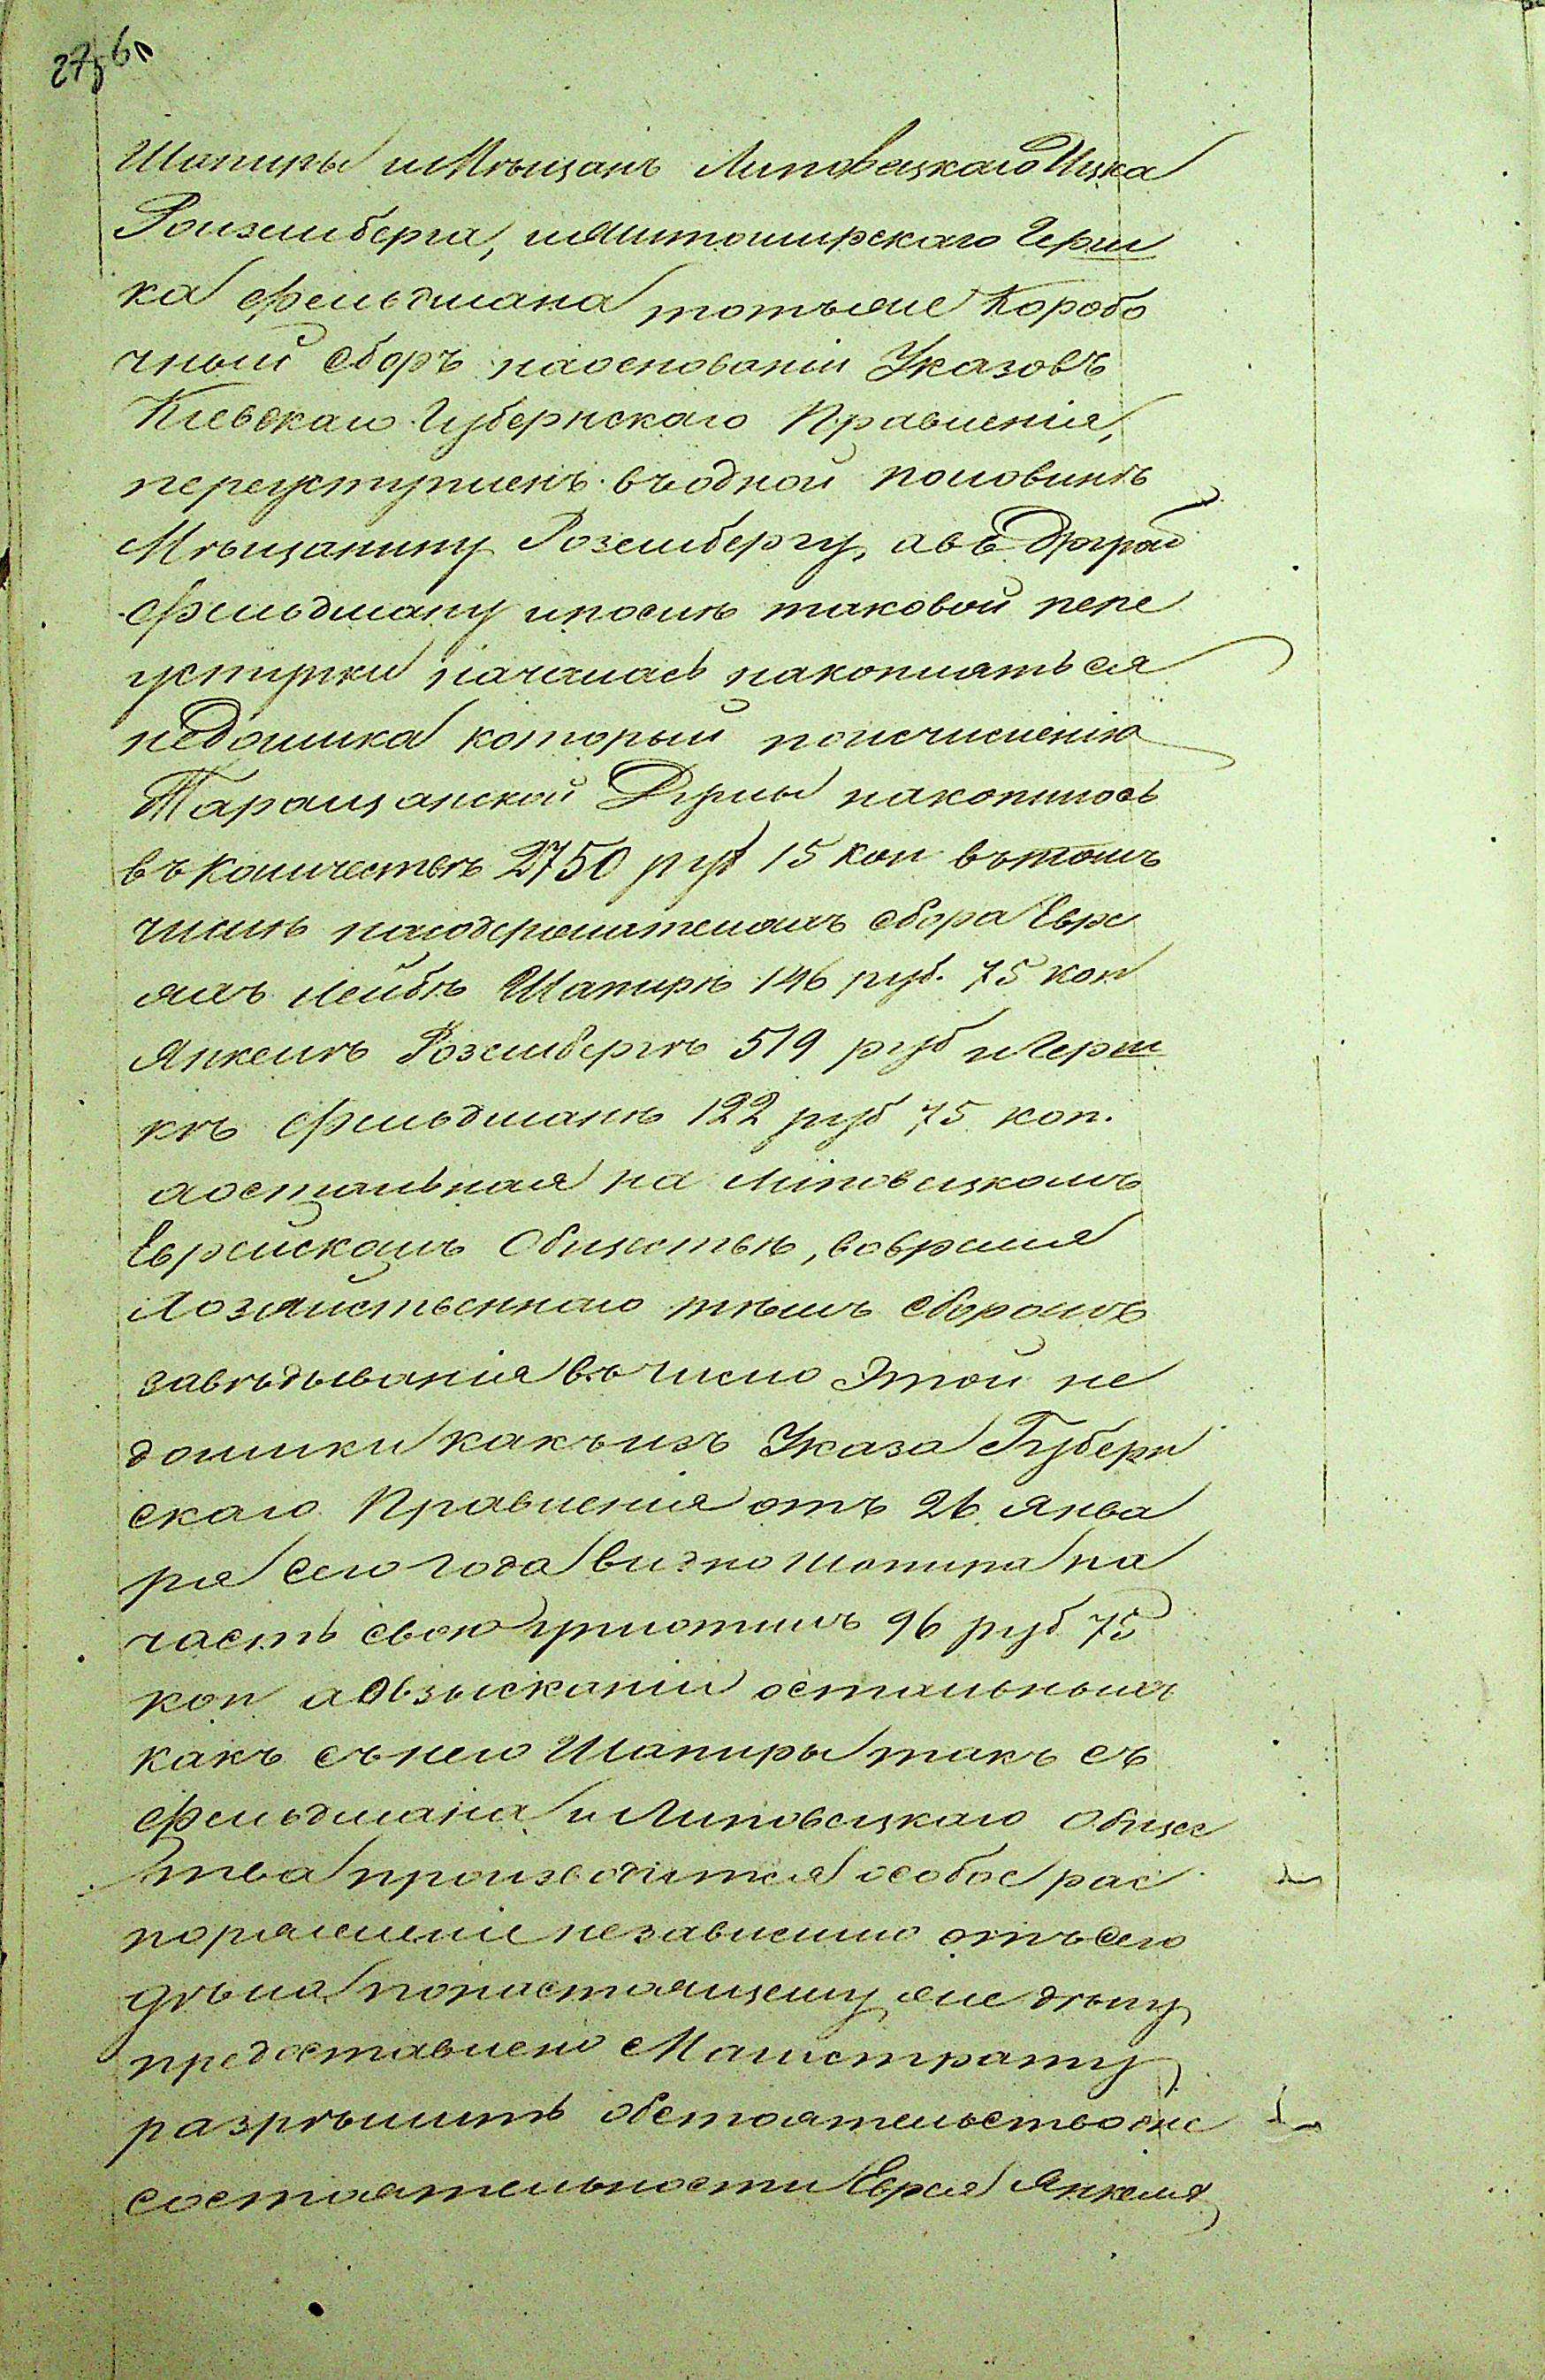 Шапиры и Мѣщанъ Липовецкаго Ицка
Роиземберга, и Житомирскаго Герш
ка Фельдмана тотъ же Коробо
чный сборъ на основаніи Указовъ
Кіевскаго Губернскаго Правленія,
переуступленъ въ одной половинѣ
Мѣщанину Розембергу, а въ другой
Фельдману и послѣ таковой пере
уступки началась накопляться
недоимка который по исчисленію
Таращанской Думы накопилось
въ количествѣ 2750 руб 15 коп въ томъ
числѣ на содержателяхъ сбора Евре
яхъ Лейбѣ Шапирѣ 146 руб. 75 коп
Янкелѣ Розембергѣ 519 руб и Герш
кѣ Фельдманѣ 122 руб 75 коп.
а остальная на Липовецкомъ
Еврейскомъ Обществѣ, во время
Хозяйственнаго тѣмъ сборомъ
завѣдыванія въ число этой не
доимки какъ изъ Указа Губерн
скаго Правленія отъ 26 Янва
ря сего года видно Шапира на
часть свою уплотилъ 96 руб 75
коп а о взысканіи остальныхъ
какъ съ него Шапиры такъ съ
Фельдмана и Липовецкаго Общес
тва производится особое рас
поряженіе независимо отъ сего
дѣла по настоящему же дѣлу
предоставлено Магистрату
разрѣшить обстоятельство о не
состоятельности Еврея Янкеля